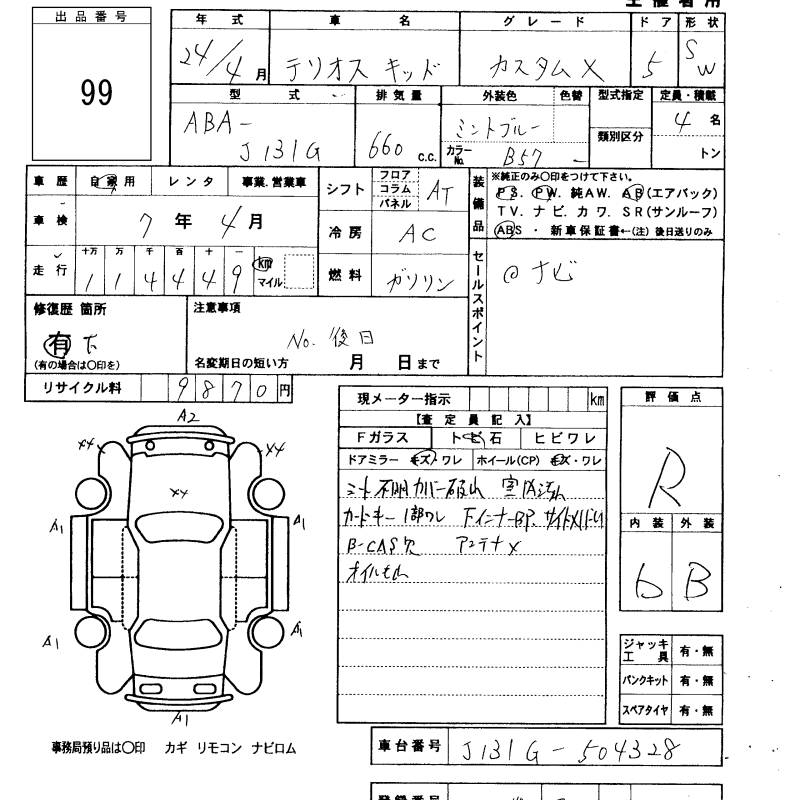 出品番号
99
年式 車名 グレード ドア 形状
24/4月 テリオス キッド カスタムX 5 SW
型式 排気量 外装色 色替 型式指定 定員・積載
ABA-
J131G
660 c.c.
ミントブルー
カラーNo. B57
類別区分
4名
トン
車歴 自家用 レンタ 事業.営業車
車検 7年 4月
走行 十万 万 千 百 十 一
1 1 4 4 4 9 km
マイル
シフト フロア コラム パネル AT
冷房 AC
燃料 ガソリン
装備品
※純正のみ〇印をつけて下さい。
PS. PW. 純AW. AB(エアバック)
TV. ナビ. カワ. SR(サンルーフ)
ABS ・ 新車保証書←(注) 後日送りのみ
セールスポイント
ナビ
修復歴 箇所
有
(有の場合は〇印を)
注意事項
No. 後日
名変期日の短い方 月 日まで
リサイクル料 9870円
現メーター指示 km
【査定員記入】
Fガラス トビ石 ヒビワレ
ドアミラー キズ・ワレ ホイール(CP) キズ・ワレ
カードキー 1部ワレ
B-CAS欠 アンテナ×
評価点
R
内装 外装
b B
ジャッキ 工具 有・無
パンクキット 有・無
スペアタイヤ 有・無
A2
××
××
××
A1
A1
A1
A1
A1
事務局預り品は〇印 カギ リモコン ナビロム
車台番号 J131G-504328